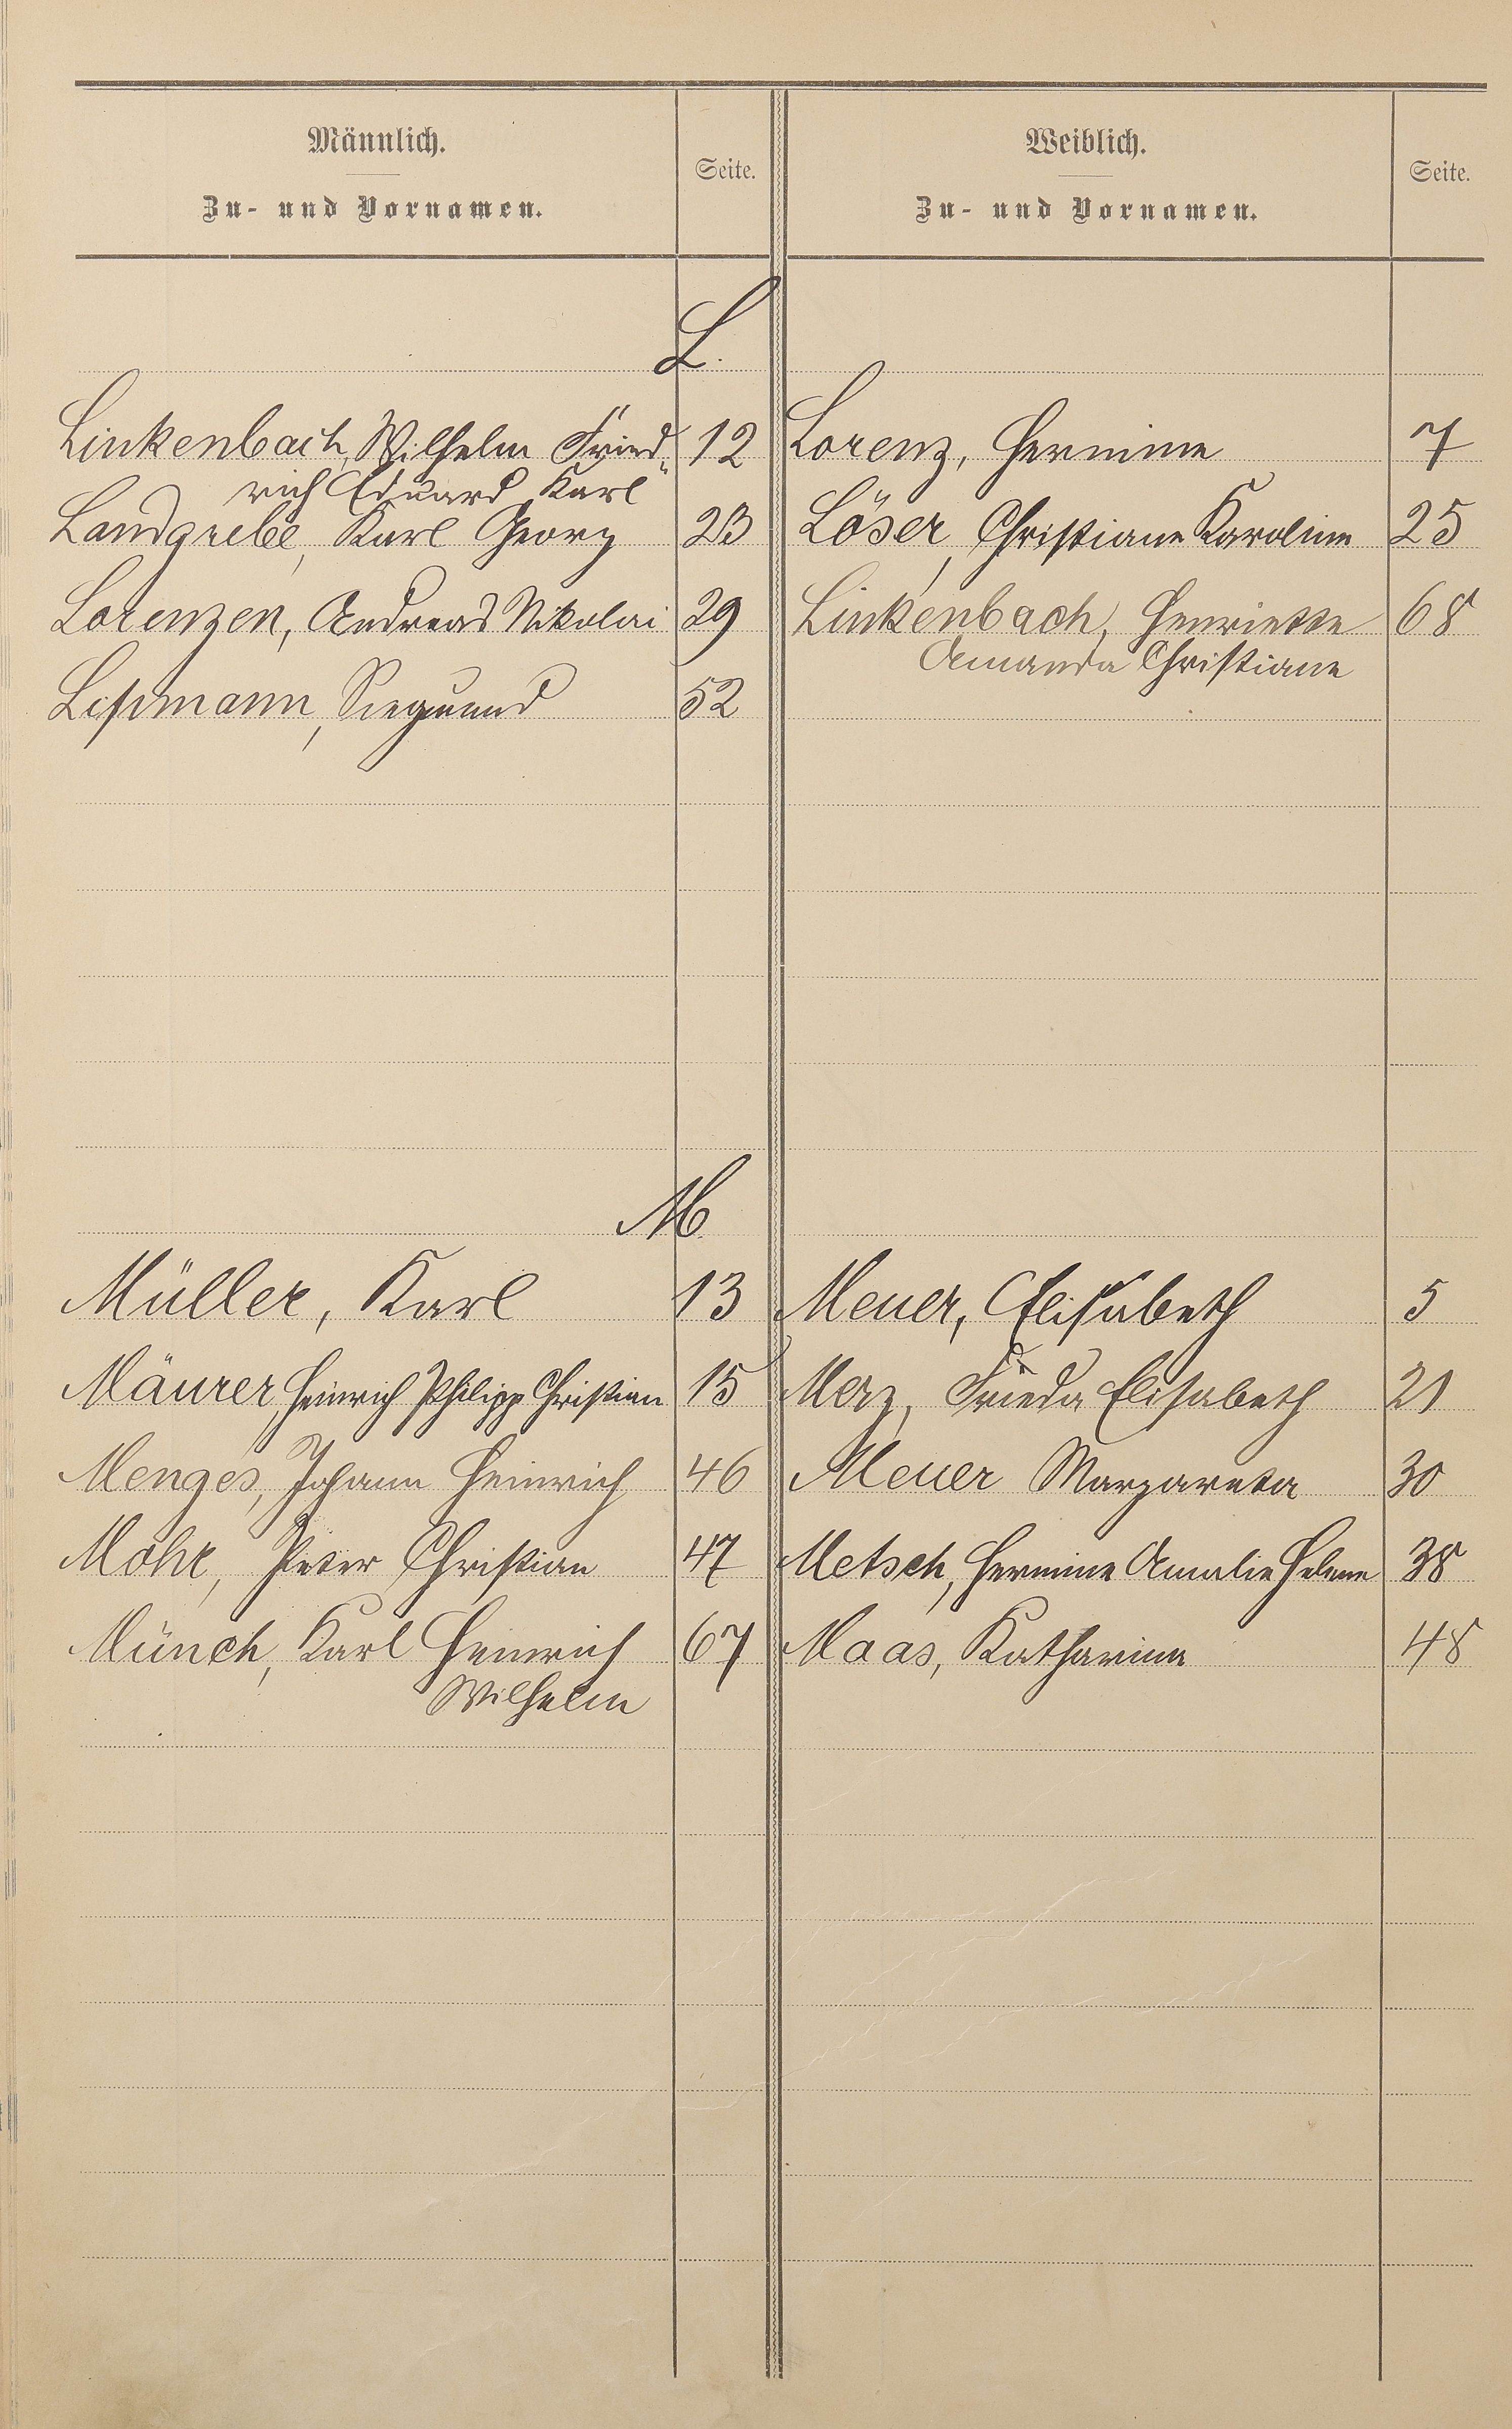 Männlich.
Zu- und Vornamen.
Seite.
Weiblich.
Zu- und Vornamen.
Seite.
L.
Linkenbach, Wilhelm Fried„ 12 Lorenz, Hermine 7
rich Eduard Karl
Landgrebe, Karl Georg 23 Löser, Christiane Karoline 25
Lorenzen, Andreas Nikolai 29 Linkenbach, Henriette 68
Amanda Christiane
Lißmann, Siegmund 52
M
Müller, Karl 13 Meuer, Elisabeth 5
Mäurer, Heinrich Philipp Christian 15 Merz, Frieda Elisabeth 21
Menges, Johann Heinrich 46 Meuer Margareta 30
Mohr, Peter Christian 47 Metsch, Hermine Amalie Helene 38
Münch, Karl Heinrich 67 Maas, Katharina 48
Wilhelm